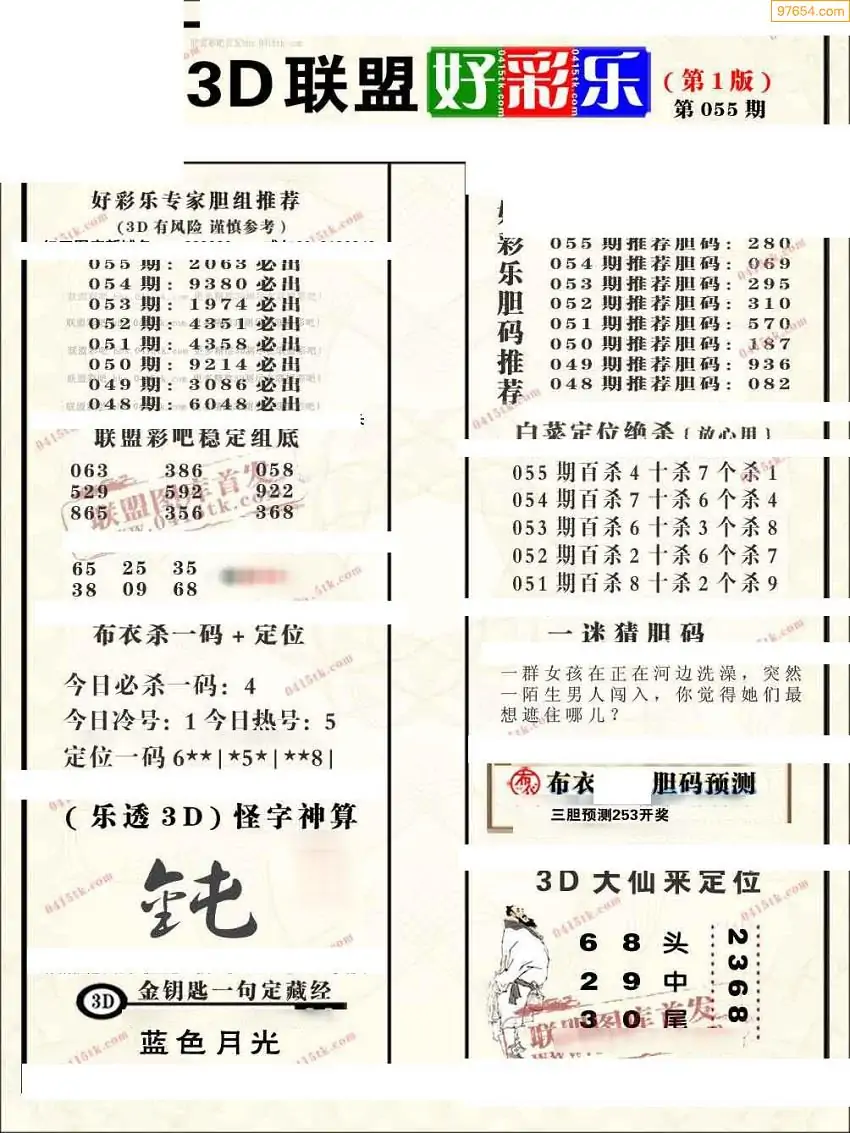 97654.com
3D联盟好彩乐
(第1版)
第055期
好彩乐专家胆组推荐
(3D有风险 谨慎参考)
055期: 2063必出
054期: 9380必出
053期: 1974必出
052期: 4351必出
051期: 4358必出
050期: 9214必出
049期: 3086必出
048期: 6048必出
联盟彩吧稳定组底
063 386 058
529 592 922
865 356 368
65 25 35
38 09 68
布衣杀一码+定位
今日必杀一码: 4
今日冷号: 1 今日热号: 5
定位一码6**|*5*|**8|
(乐透3D)怪字神算
3D 金钥匙一句定藏经
蓝色月光
彩乐胆码推荐
055期推荐胆码: 280
054期推荐胆码: 069
053期推荐胆码: 295
052期推荐胆码: 310
051期推荐胆码: 570
050期推荐胆码: 187
049期推荐胆码: 936
048期推荐胆码: 082
白菜定位绝杀{放心用}
055期百杀4十杀7个杀1
054期百杀7十杀6个杀4
053期百杀6十杀3个杀8
052期百杀2十杀6个杀7
051期百杀8十杀2个杀9
一迷猜胆码
一群女孩在正在河边洗澡，突然
一陌生男人闯入，你觉得她们最
想遮住哪儿？
布衣 布衣 胆码预测
三胆预测253开奖
3D大仙来定位
6 8 头
2 9 中
3 0 尾
2368
联盟图库首发
www.0415tk.com
联盟图库首发
0415tk.com